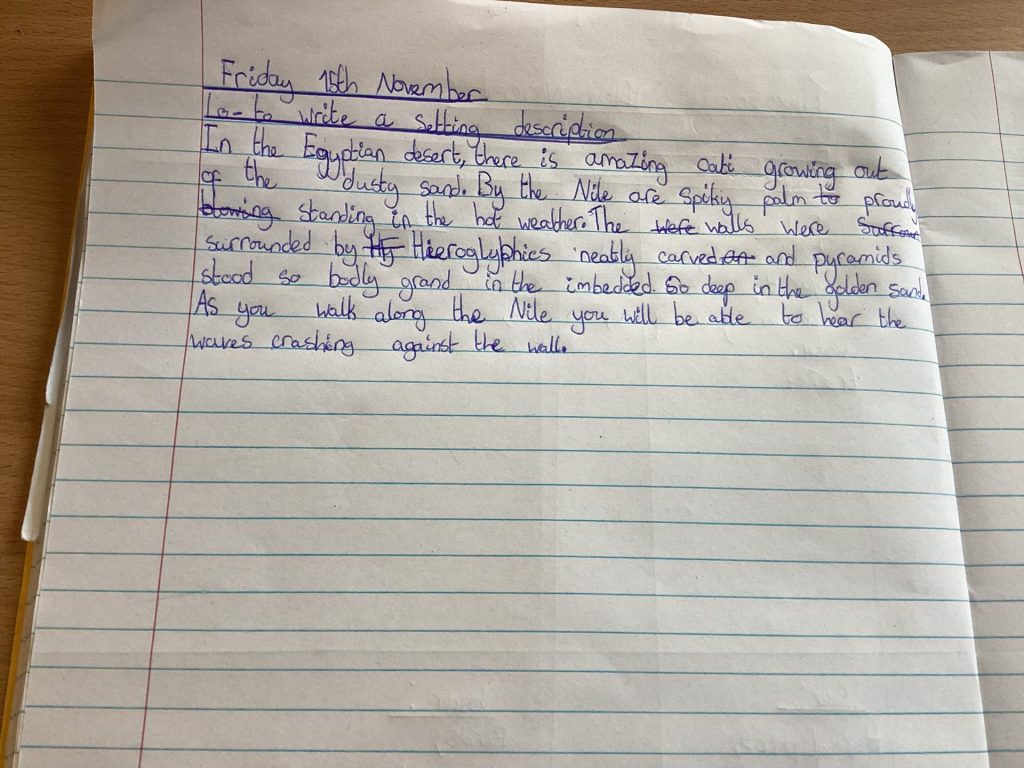 Friday 15th November
Lo- to write a setting description
In the Egyptian desert, there is amazing cati growing out
of the dusty sand. By the Nile are spiky palm to proudly
blowing standing in the hot weather. The were walls were Surroun
surrounded by Hy Hieeroglyphics neatly carved on and pyramids
stood so bodly grand in the imbedded. So deep in the golden sand.
As you walk along the Nile you will be able to hear the
waves crashing against the wall.